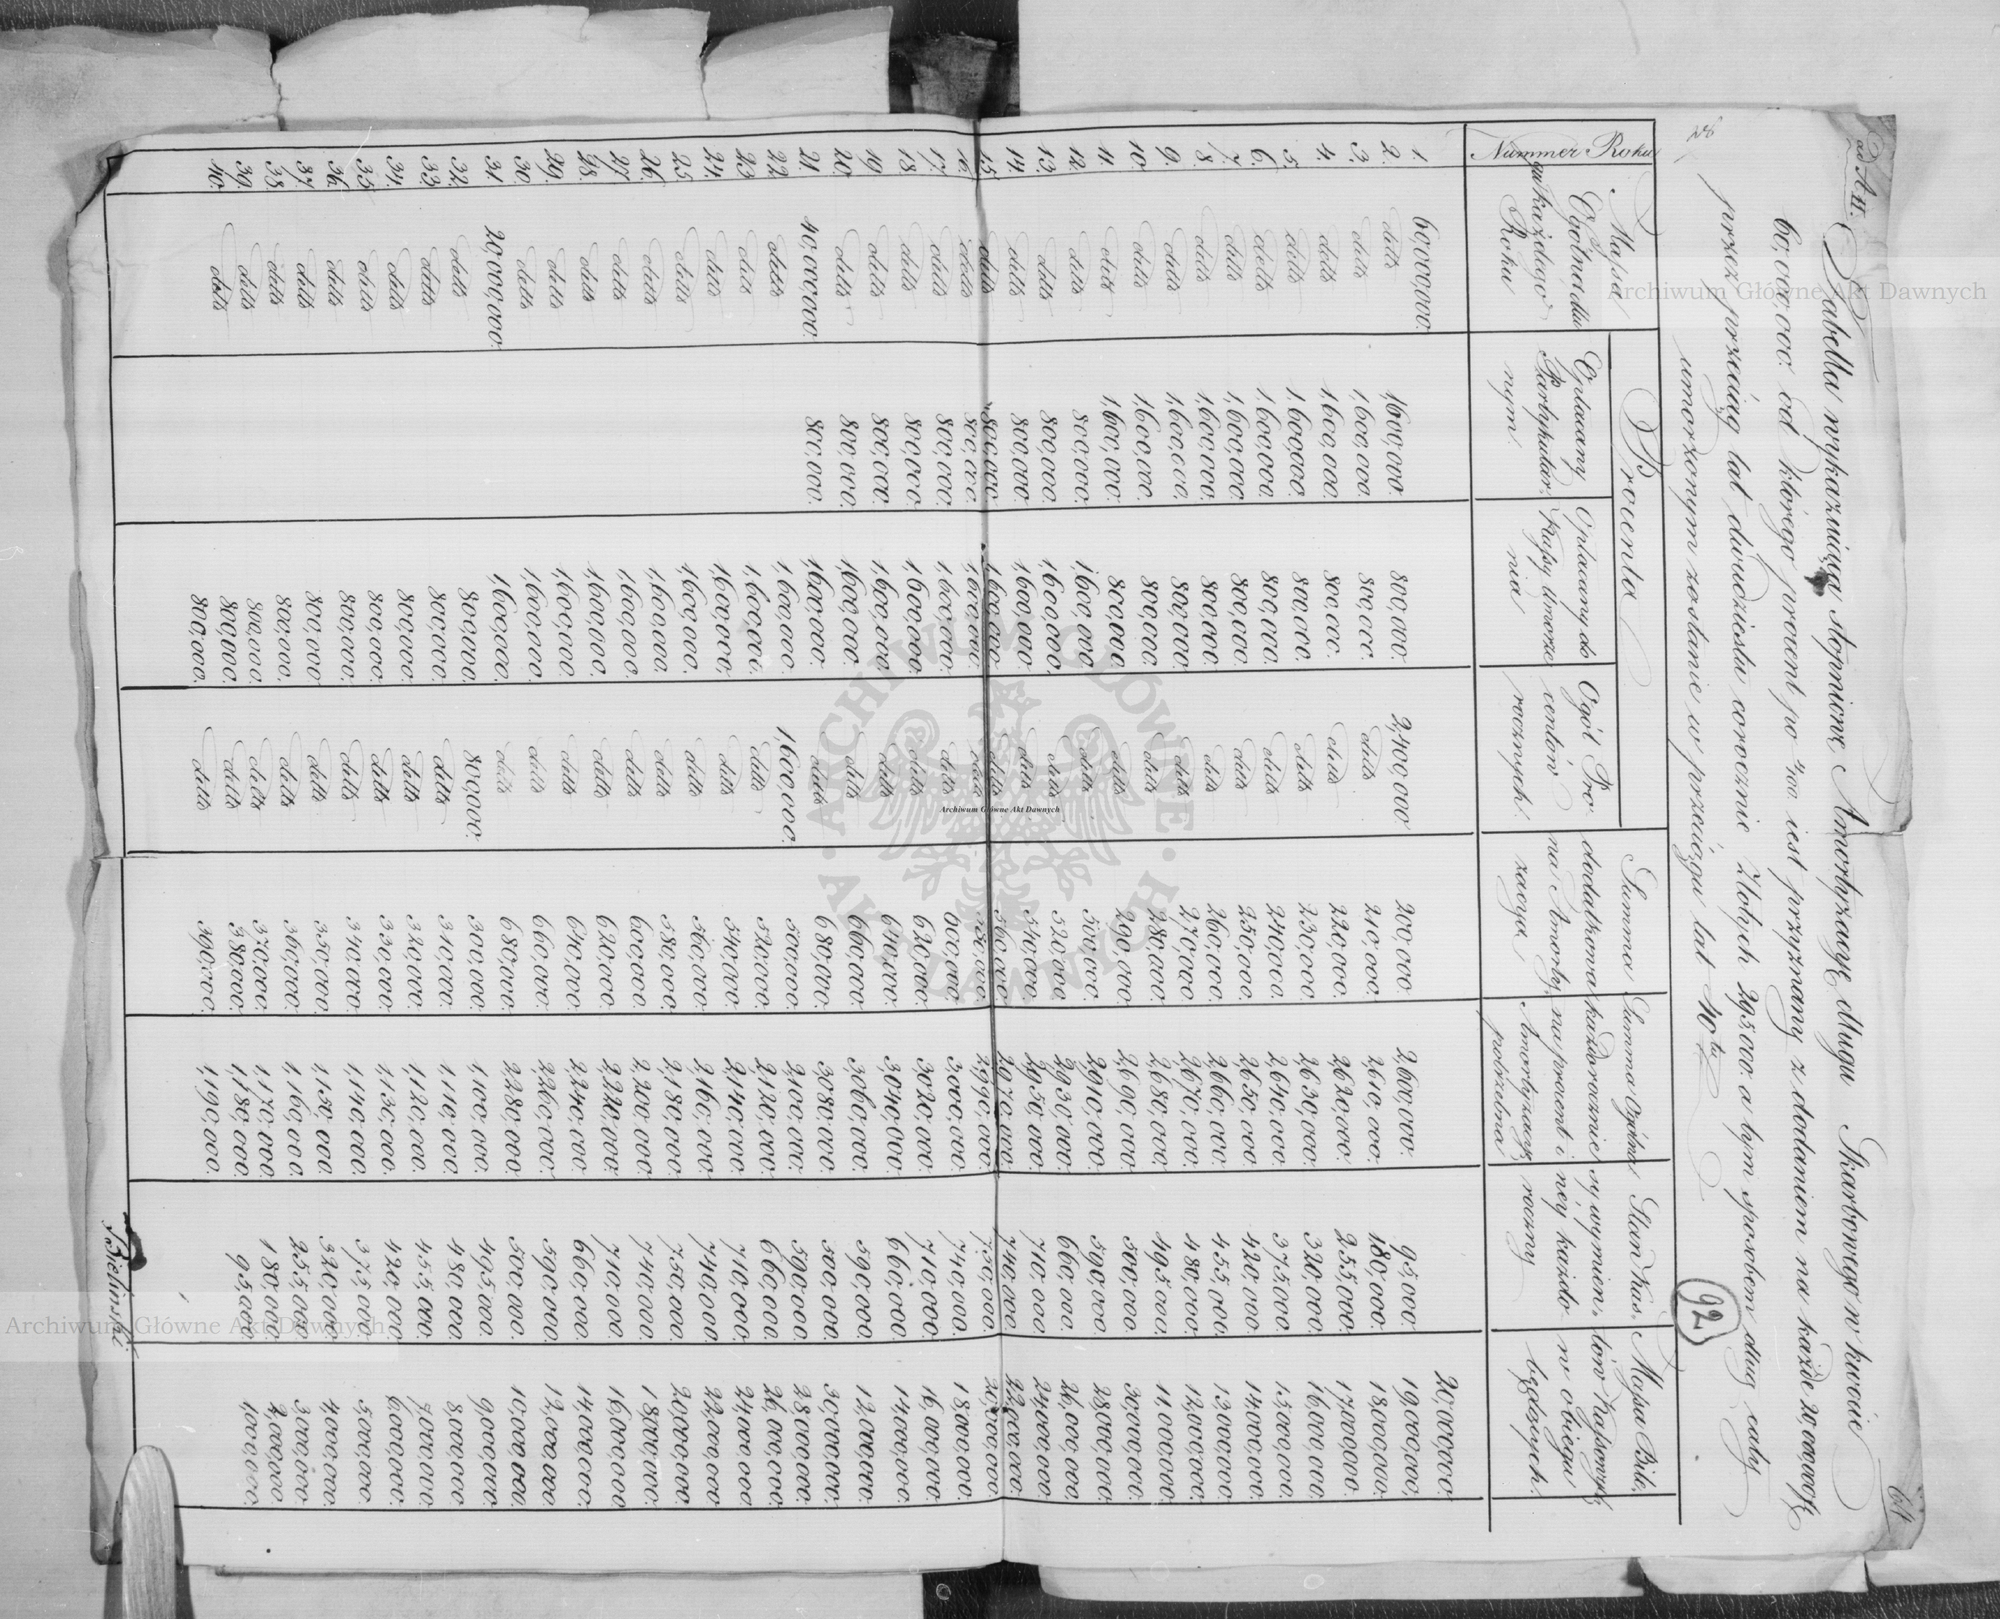 ad A II.
64
Tabella wykazuiąca stopniowe Amortyzacyę długu Skarbowego w kwocie
60,000,000. od którego procent po 4/00 iest przyznany z dodaniem na każde 20,000,000 zł
przez przeciąg lat dwudziestu corocznie Złotych 295,000 a tym sposobem dług cały
umorzonym zostanie w przeciągu lat 40tu
92
Nummer Roku
Massa Ogólna dla każdego Roku
Procenta
Opłacany Partykularnym.
Opłacany do Kassy Umorzenia
Ogół Procentów rocznych
Summa dodatkowa na Amortyzacyą
Summa Ogólna każdorocznie na procent i Amortyzacyę potrzebna
Massa Biletów Kassowych w obiegu będących
20,000,000.
1. 60,000,000. 1,600,000. 800,000. 2,400,000 200,000. 2,600,000. 95,000. 19,000,000.
2. detto 1,600,000. 800,000. detto 210,000. 2,610,000. 180,000. 18,000,000.
3. detto 1,600,000. 800,000. detto 220,000. 2,620,000 255,000. 17,000,000.
4. detto 1,600,000. 800,000. detto 230,000. 2,630,000. 320,000. 16,000,000.
5. detto 1,600,000. 800,000. detto 240,000. 2,640,000. 375,000. 15,000,000.
6. detto 1,600,000. 800,000. detto 250,000. 2,650,000. 420,000. 14,000,000.
7. detto 1,600,000. 800,000. detto 260,000. 2,660,000. 455,000. 13,000,000.
8. detto 1,600,000. 800,000. detto 270,000. 2,670,000. 480,000. 12,000,000.
9. detto 1,600,000. 800,000. detto 280,000. 2,680,000. 495,000. 11,000,000.
10. detto 1,600,000. 800,000. detto 290,000. 2,690,000. 500,000. 30,000,000.
11. detto 800,000. 1,600,000. detto 500,000. 2,910,000. 590,000. 28,000,000.
12. detto 800,000. 1,600,000. detto 520,000. 2,930,000. 660,000. 26,000,000.
13. detto 800,000. 1,600,000. detto 540,000. 2,950,000. 710,000. 24,000,000.
14. detto 800,000. 1,600,000. detto 560,000. 2,970,000. 740,000. 22,000,000.
15. detto 800,000. 1,600,000. detto 580,000. 2,990,000. 750,000. 20,000,000.
16. detto 800,000. 1,600,000. detto 600,000. 3,000,000. 740,000. 18,000,000.
17. detto 800,000. 1,600,000. detto 620,000. 3,020,000. 710,000. 16,000,000.
18. detto 800,000. 1,600,000. detto 640,000. 3,040,000. 660,000. 14,000,000.
19. detto 800,000. 1,600,000. detto 660,000. 3,060,000. 590,000. 12,000,000.
20. detto 800,000. 1,600,000. detto 680,000. 3,080,000. 500,000. 30,000,000.
21. 40,000,000. 1,600,000. 1,600,000. 500,000. 2,100,000. 590,000. 28,000,000.
22. detto 1,600,000. detto 520,000. 2,120,000. 660,000. 26,000,000.
23. detto 1,600,000. detto 540,000. 2,140,000. 710,000. 24,000,000.
24. detto 1,600,000. detto 560,000. 2,160,000. 740,000 22,000,000.
25. detto 1,600,000. detto 580,000. 2,180,000. 750,000. 20,000,000.
26. detto 1,600,000. detto 600,000. 2,200,000. 740,000. 18,000,000.
27. detto 1,600,000. detto 620,000. 2,220,000. 710,000. 16,000,000.
28. detto 1,600,000. detto 640,000. 2,240,000. 660,000. 14,000,000.
29. detto 1,600,000. detto 660,000. 2,260,000. 590,000. 12,000,000.
30. detto 1,600,000. detto 680,000. 2,280,000. 500,000. 10,000,000.
31. 20,000,000. 800,000. 800,000. 300,000. 1,100,000. 495,000. 9,000,000.
32. detto 800,000. detto 310,000. 1,110,000. 480,000. 8,000,000.
33. detto 800,000. detto 320,000. 1,120,000. 455,000. 7,000,000.
34. detto 800,000. detto 330,000. 1,130,000. 420,000. 6,000,000.
35. detto 800,000. detto 340,000. 1,140,000. 375,000. 5,000,000.
36. detto 800,000. detto 350,000. 1,150,000. 320,000. 4,000,000.
37. detto 800,000. detto 360,000. 1,160,000. 255,000. 3,000,000.
38. detto 800,000. detto 370,000. 1,170,000. 180,000. 2,000,000.
39. detto 800,000. detto 380,000. 1,180,000. 95,000. 1,000,000.
40. detto 800,000. detto 390,000. 1,190,000.
Bieliński
Archiwum Główne Akt Dawnych
Archiwum Główne Akt Dawnych
Archiwum Główne Akt Dawnych
ARCHIWUM GŁÓWNE · AKT DAWNYCH ·